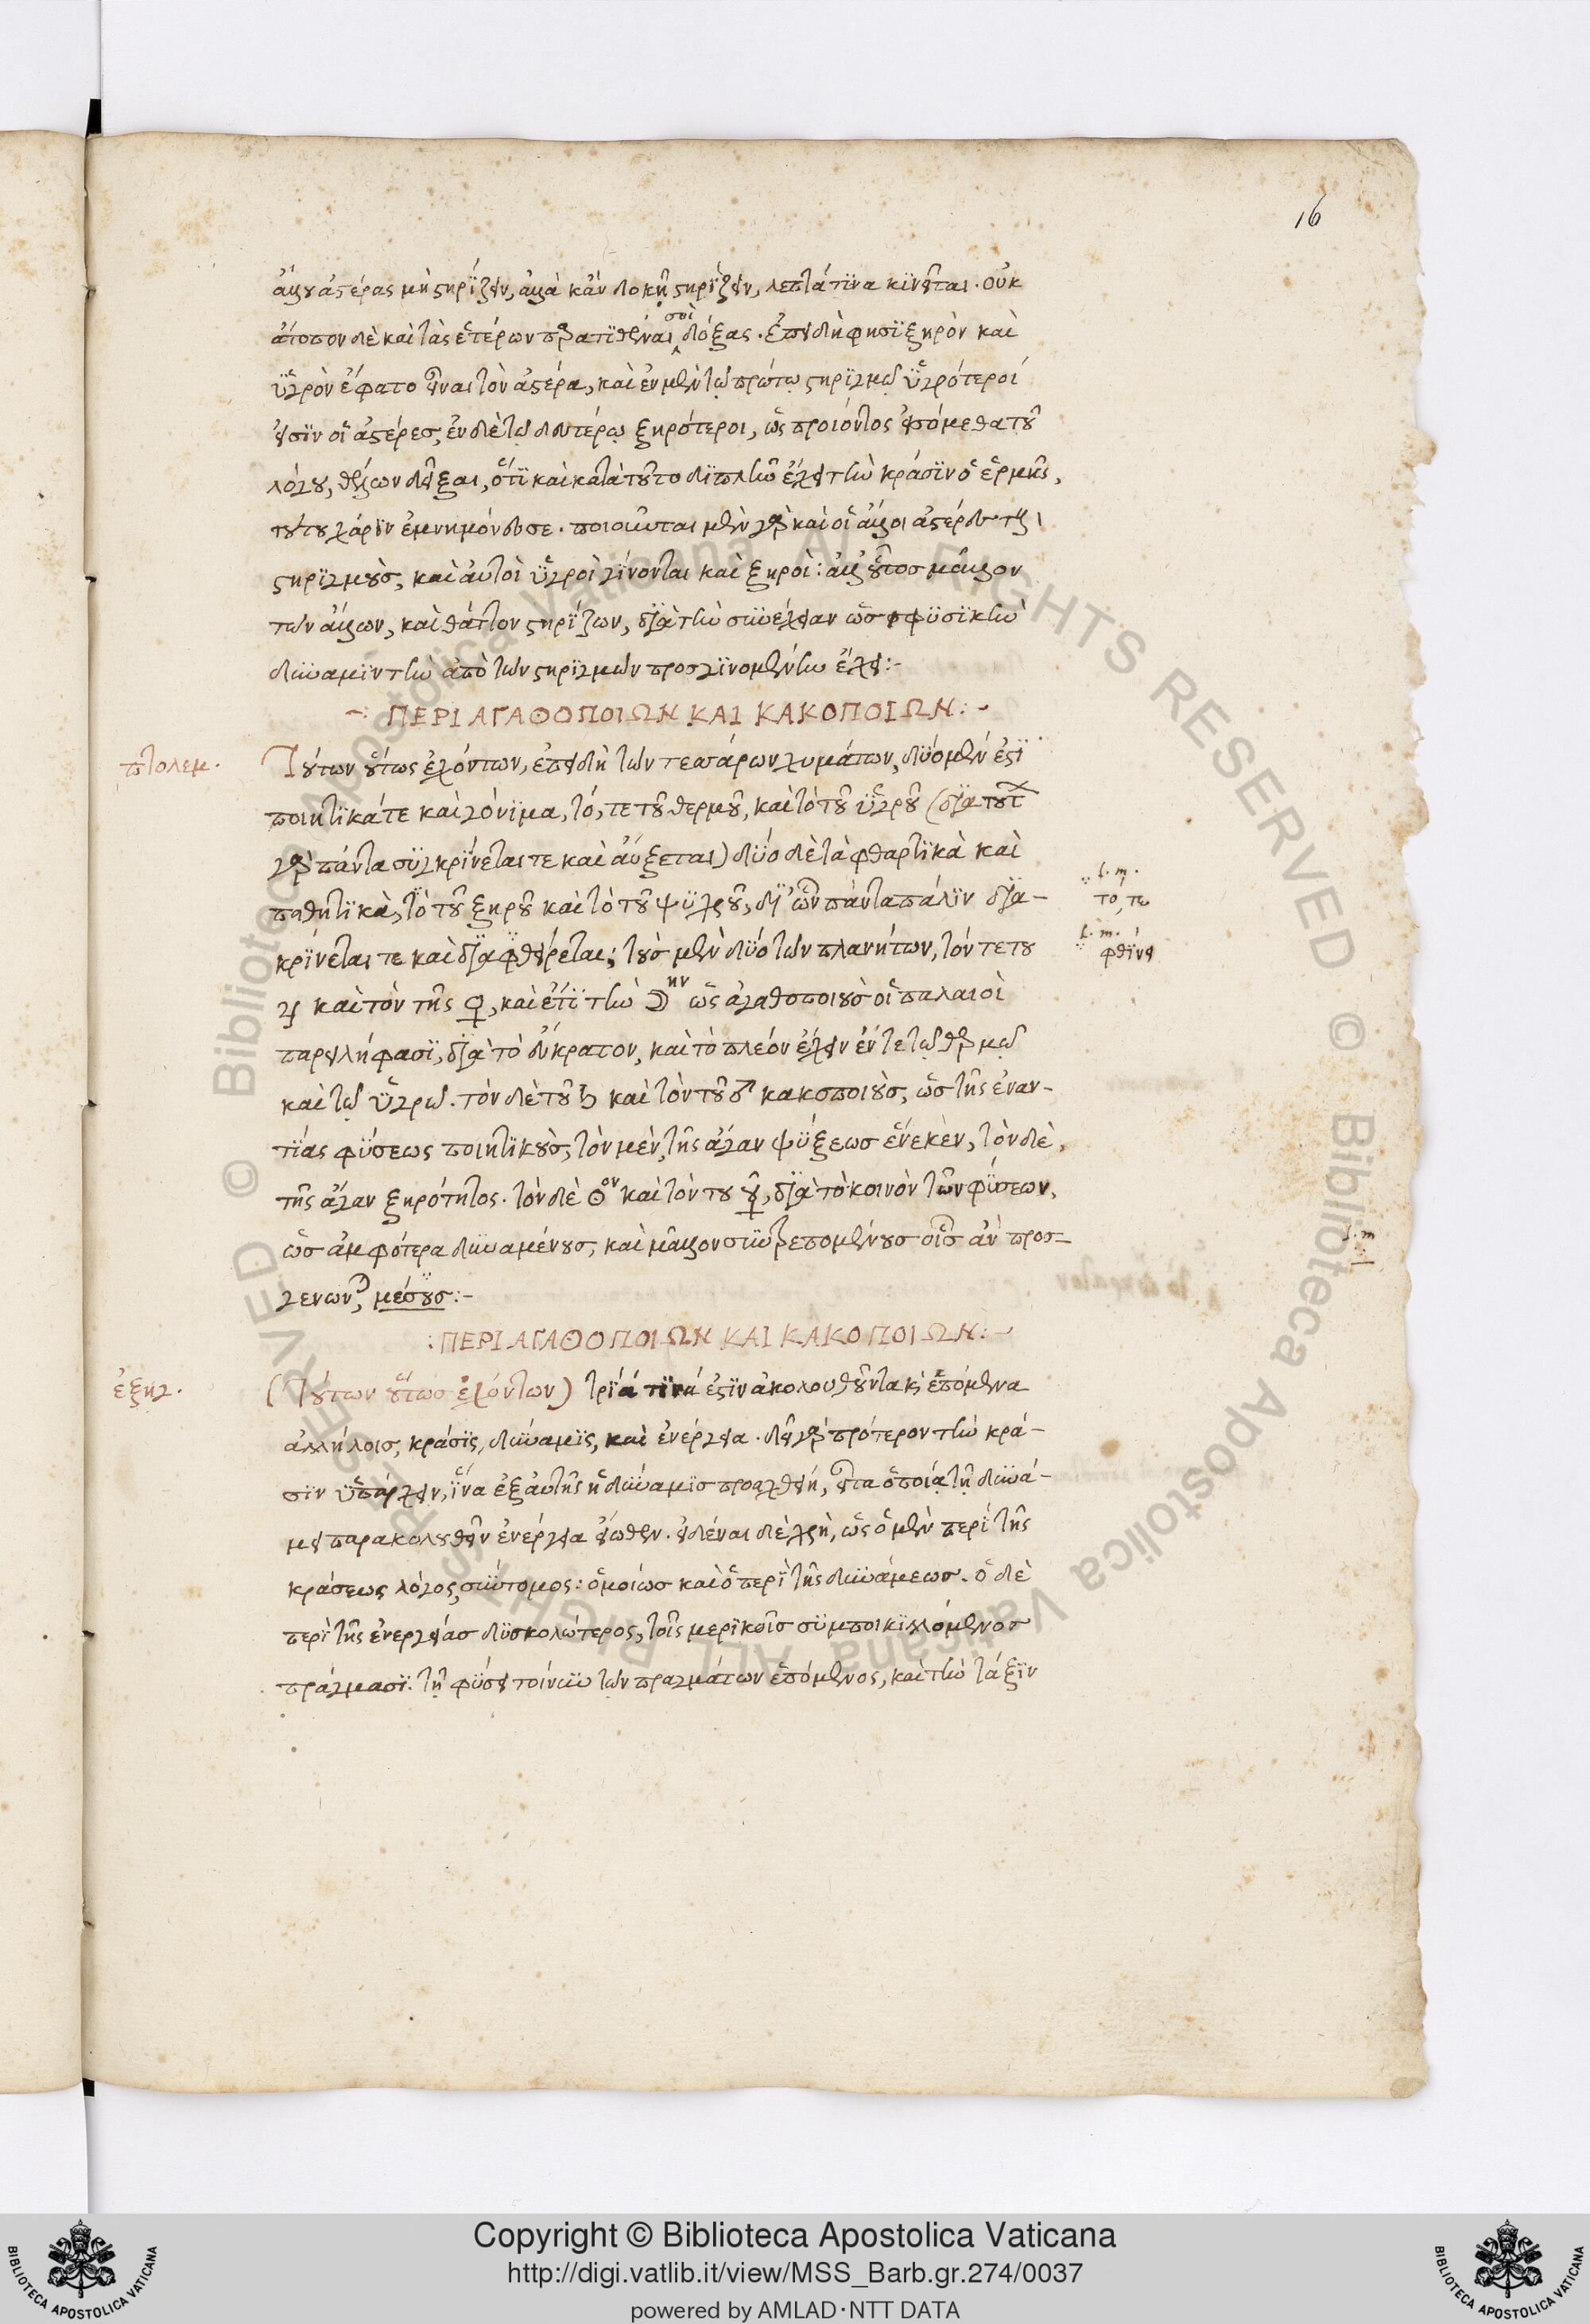 16
ἄλλου ἀστέρας μὴ στηρίζειν, ἀλλὰ κἂν δοκῇ στηρίζειν, λεπτά τινα κινεῖται. οὐκ
ἄτοπον δὲ καὶ τὰς ἑτέρων παρατιθέναι σοι δόξας. ἐπειδὴ φησὶ ξηρὸν καὶ
ὑγρὸν ἔφατο εἶναι τὸν ἀστέρα, καὶ ἐν μὲν τῷ πρώτῳ στηριγμῷ ὑγρότεροί
εἰσιν οἱ ἀστέρες, ἐν δὲ τῷ δευτέρῳ ξηρότεροι, ὡς προιόντος εἰσόμεθα τοῦ
λόγου, θέλων δεῖξαι, ὅτι καὶ κατὰ τοῦτο διπλῆν ἔχει τὴν κρᾶσιν ὁ ἑρμῆς,
τούτου χάριν ἐμνημόνευσε. ποιοῦνται μὲν γὰρ καὶ οἱ ἄλλοι ἀστέρες
στηριγμοὺς, καὶ αὐτοὶ ὑγροὶ γίνονται καὶ ξηροί: ἀλλ' οὗτος μᾶλλον
τῶν ἄλλων, καὶ θᾶττον στηρίζων, διὰ τὴν συνέχειαν ὡς φυσικὴν
δύναμιν τὴν ἀπὸ τῶν στηριγμῶν προσγινομένην ἔχει:-
ΠΕΡΙ ΑΓΑΘΟΠΟΙΩΝ ΚΑΙ ΚΑΚΟΠΟΙΩΝ:-
πτολεμ. Τούτων οὕτως ἐχόντων, ἐπειδὴ τῶν τεσσάρων χυμάτων, δύο μέν ἐστι
ποιητικά τε καὶ γόνιμα, τό, τε τοῦ θερμοῦ, καὶ τὸ τοῦ ὑγροῦ (διὰ τούτ
γὰρ πάντα συγκρίνεται τε καὶ αὔξεται) δύο δὲ τὰ φθαρτικὰ καὶ
παθητικὰ, τὸ τοῦ ξηροῦ καὶ τὸ τοῦ ψυχροῦ, δι' ὧν πάντα πάλιν δια-
l. m. τό, τε
κρίνεται τε καὶ διαφθείρεται; τοὺς μὲν δύο τῶν πλανήτων, τόν τε του
l. m. φθίνει
♃ καὶ τὸν τῆς ♀, καὶ ἔτι τὴν ☽ην ὡς ἀγαθοποιοὺς οἱ παλαιοὶ
παρειλήφασι, διὰ τὸ εὔκρατον, καὶ τὸ πλέον ἔχειν ἔν τε τῷ θερμῷ
καὶ τῷ ὑγρῷ. τὸν δὲ τοῦ ♄ καὶ τὸν τοῦ ♂ κακοποιοὺς, ὡς τῆς ἐναν-
τίας φύσεως ποιητικοὺς, τὸν μὲν, τῆς ἄγαν ψύξεως ἕνεκεν, τὸν δὲ,
τῆς ἄγαν ξηρότητος. τὸν δὲ ☉ον καὶ τὸν του ☿, διὰ τὸ κοινὸν τῶν φύσεων,
ὡς ἀμφότερα δυναμένους, καὶ μᾶλλον συντρεπομένους οἷς ἂν προσ-
l. m
γενων, μέσους:-
:ΠΕΡΙ ΑΓΑΘΟΠΟΙΩΝ ΚΑΙ ΚΑΚΟΠΟΙΩΝ:-
ἐξηγ. (Τούτων οὕτως ἐχόντων) τρία τινά ἐστιν ἀκολουθοῦντα κὶ ἑπόμενα
ἀλλήλοις, κρᾶσις, δύναμις, καὶ ἐνέργεια. δεῖ γὰρ πρότερον τὴν κρᾶ-
σιν ὑπάρχειν, ἵνα ἐξ αὐτῆς ἡ δύναμις προαχθείη, εἶτα ὁποίᾳ τῇ δυνά-
μει παρακολουθεῖν ἐνέργεια εἴωθεν. εἰδέναι δὲ χρὴ, ὡς ὁ μὲν περὶ τῆς
κράσεως λόγος, σύντομος: ὁμοίως καὶ ὁ περὶ τῆς δυνάμεως. ὁ δὲ
περὶ τῆς ἐνεργείας δυσκολώτερος, τοῖς μερικοῖς συμποικιλλόμενος
πράγμασι. τῇ φύσει τοίνυν τῶν πραγμάτων ἑπόμενος, καὶ τὴν τάξιν
© Biblioteca Apostolica Vaticana ALL RIGHTS RESERVED
© Biblioteca Apostolica Vaticana ALL RIGHTS RESERVED
Copyright © Biblioteca Apostolica Vaticana
http://digi.vatlib.it/view/MSS_Barb.gr.274/0037
powered by AMLAD·NTT DATA
BIBLIOTECA APOSTOLICA VATICANA
BIBLIOTECA APOSTOLICA VATICANA